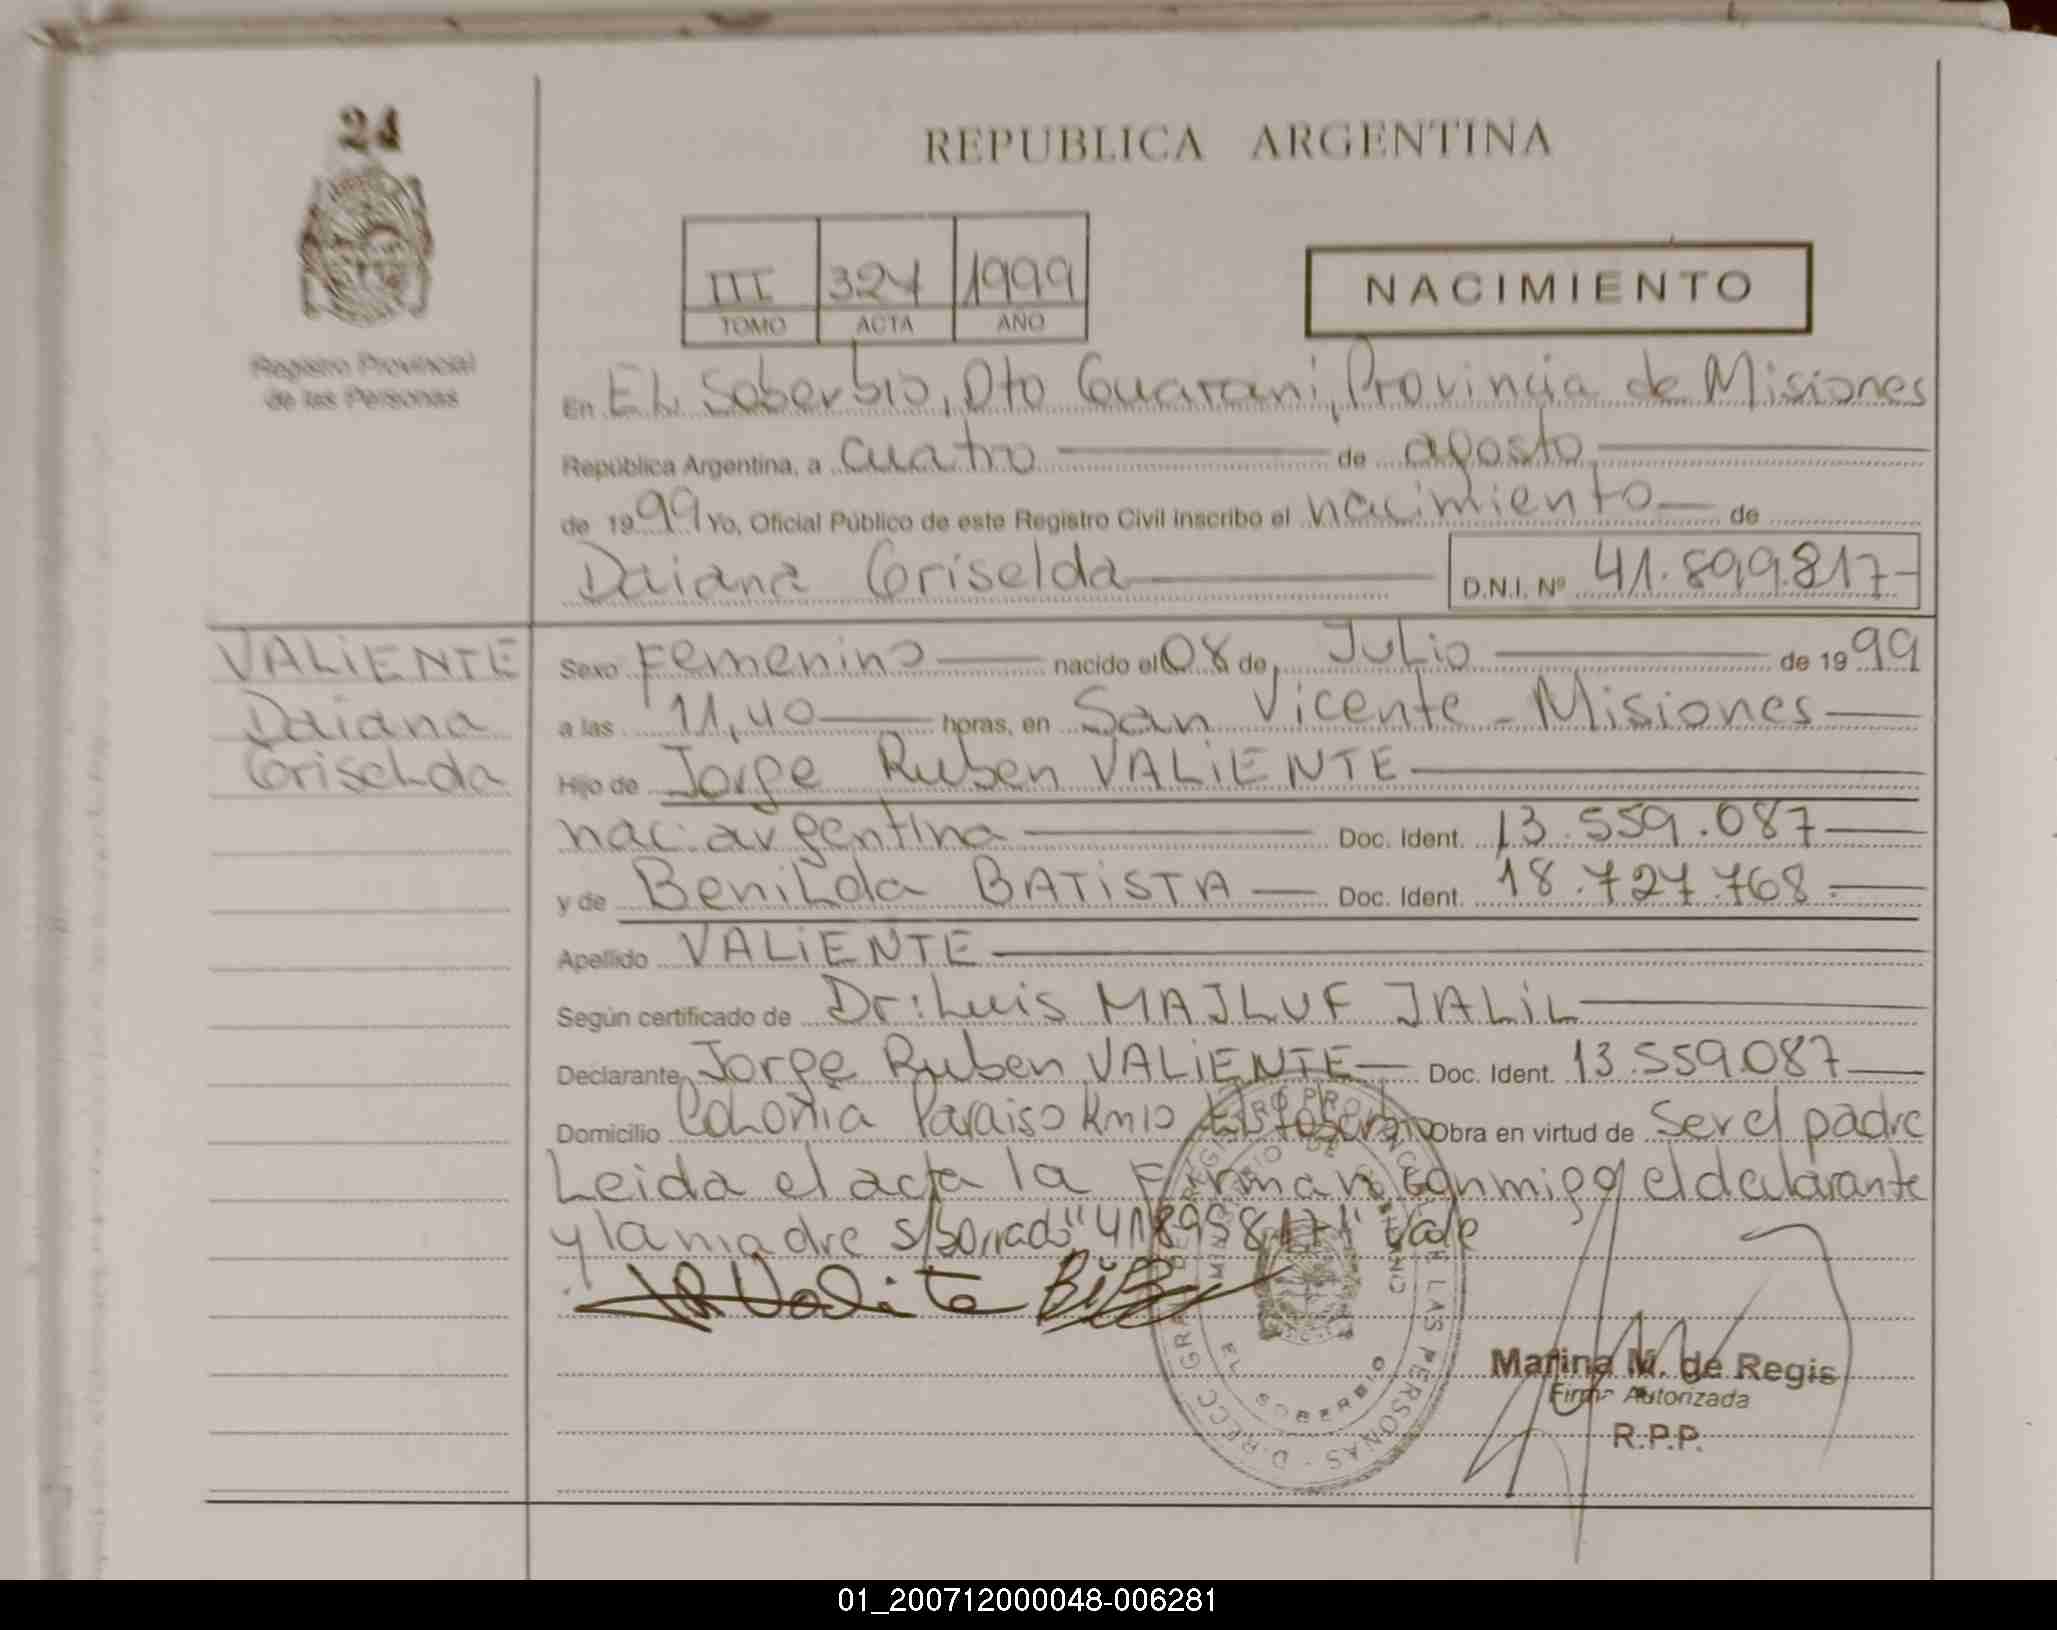 24
REPUBLICA ARGENTINA
III 327 1999
TOMO ACTA AÑO
NACIMIENTO
Registro Provincial
de las Personas
En EL Soberbio, Dto Guarani, Provincia de Misiones
República Argentina, a cuatro de agosto
de 1999 Yo, Oficial Público de este Registro Civil inscribo el nacimiento de
Daiana Griselda D.N.I. Nº 41.899.817
VALiENTE
Daiana
GriseLda
Sexo Femenino nacido el 08 de JuLio de 1999
a las 11,40 horas, en San Vicente - Misiones
Hijo de Jorge Ruben VALiENTE
nac. argentina Doc. Ident. 13.559.087
y de BeniLda BATiSTA Doc. Ident. 18.727.768.
Apellido VALiENTE
Según certificado de Dr: Luis MAJLUF JALiL
Declarante Jorge Ruben VALiENTE Doc. Ident. 13.559.087
Domicilio CoLonia Paraiso Km10 El Soberbio Obra en virtud de Ser el padre
Leida el acta la Firman conmigo el declarante
y la madre s/borrado "41899817" Vale
Marina M. de Regis
Firma Autorizada
R.P.P.
EL SOBERBIO
01_200712000048-006281